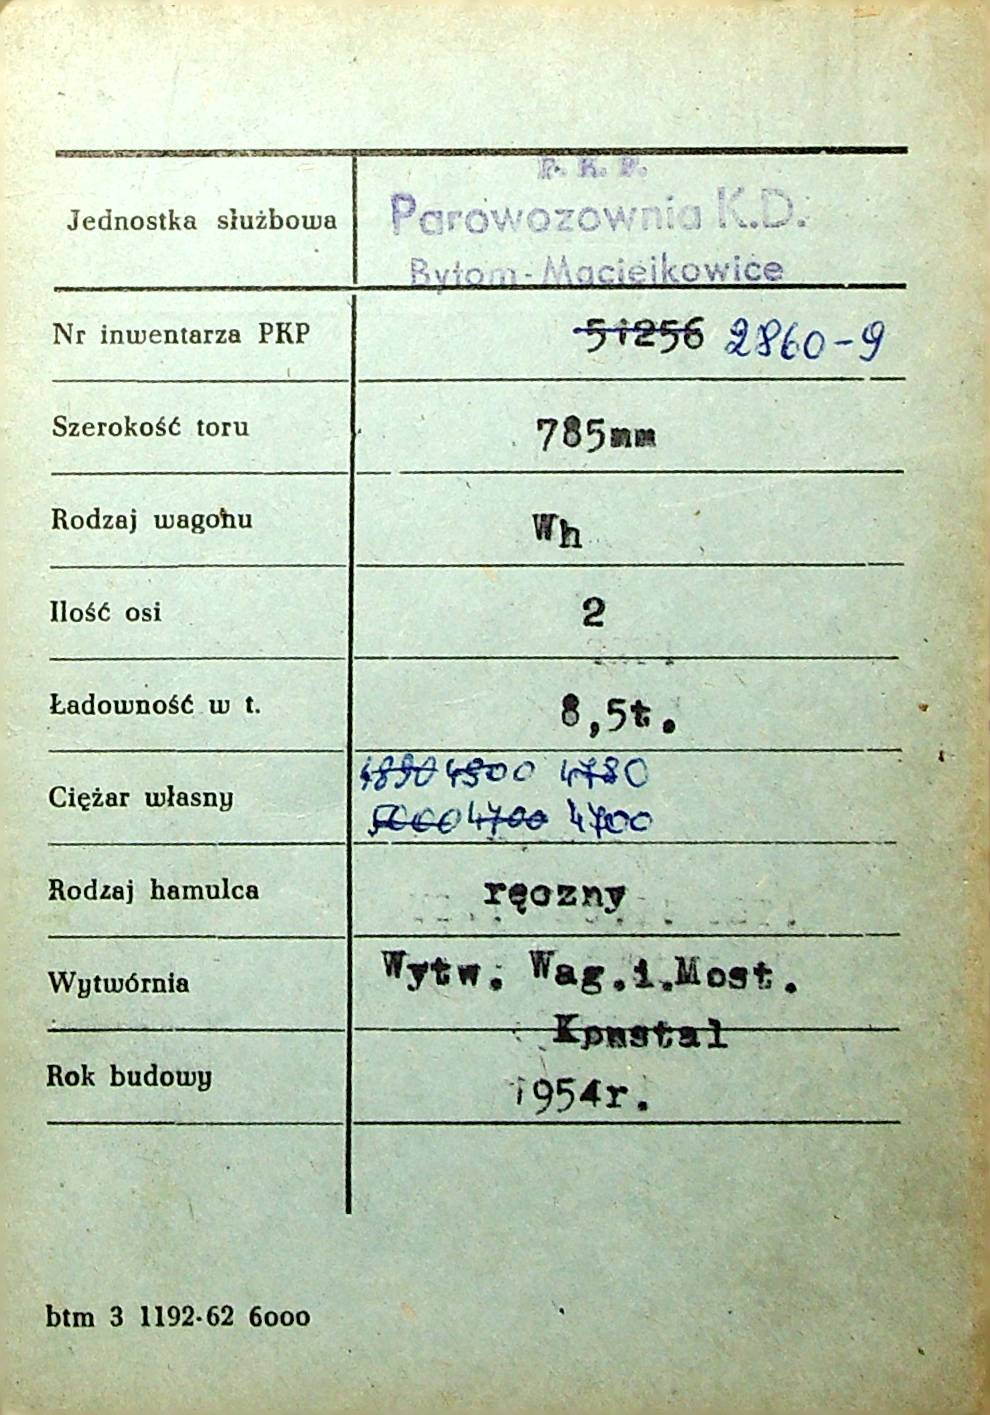 P. K. P.
Jednostka służbowa Parowozownia K.D.
Bytom-Maciejkowice
Nr inwentarza PKP 51256 2860-9
Szerokość toru 785mm
Rodzaj wagonu Wh
Ilość osi 2
Ładowność w t. 8,5t.
4890 4900 4780
Ciężar własny
5000 4700 4700
Rodzaj hamulca ręczny
Wytwórnia Wytw. Wag.i.Most.
Konstal
Rok budowy 1954r.
btm 3 1192-62 6000